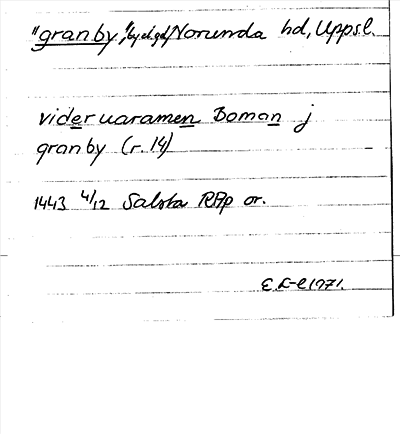 "granby", by el. gd, Norunda hd, Uppsl.
vider uaramen Boman j
granby (r. 14)
1443 4/12 Salsta RAp or.
E. L-e 1971.